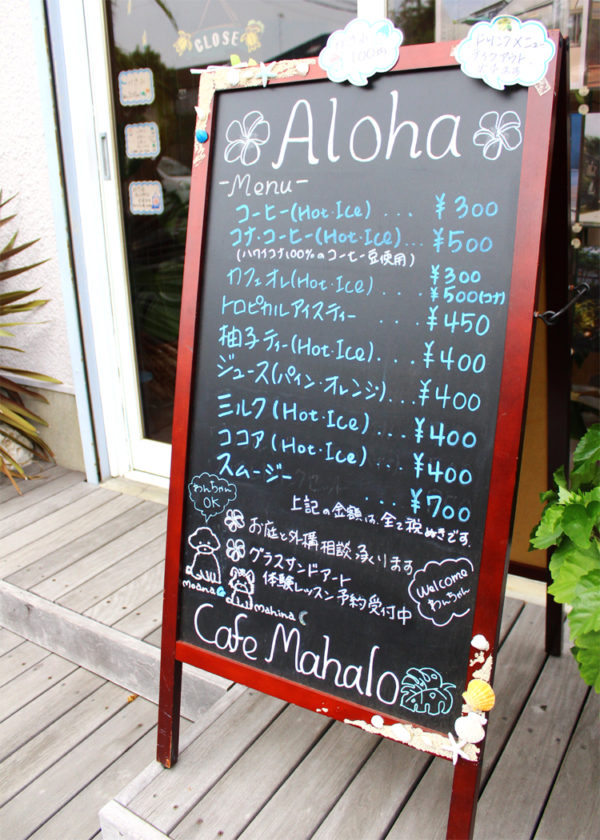 CLOSE
100m
ドリンクメニュー
テイクアウト
できます
Aloha
-Menu-
コーヒー(Hot・Ice)... ¥300
コナ・コーヒー(Hot・Ice)... ¥500
(ハワイコナ100%のコーヒー豆使用)
カフェオレ(Hot・Ice) ... ¥300
¥500(コナ)
トロピカルアイスティー ... ¥450
柚子ティー(Hot・Ice)... ¥400
ジュース(パイン・オレンジ)... ¥400
ミルク(Hot・Ice) ... ¥400
ココア(Hot・Ice) ... ¥400
スムージー ... ¥700
上記の金額は、全て税ぬきです。
わんちゃん
OK
お庭と外構相談承ります
グラスサンドアート
体験レッスン予約受付中
Moana
Mahina
Welcome
わんちゃん
Cafe Mahalo